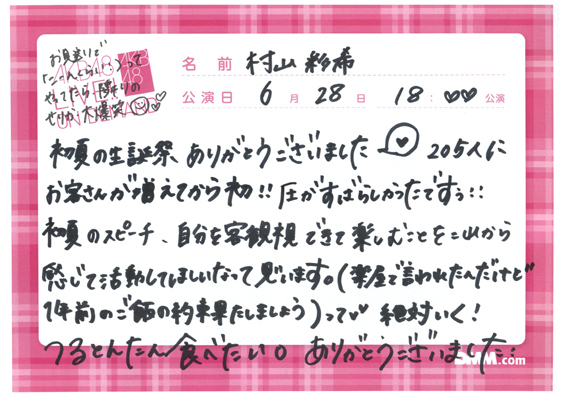 お見送りで
「こんくらい」って
やってたら 隣の
せりが大爆笑
AKB48
LIVE!!
ON DEMAND
名前 村山彩希
公演日 6月 28日 18:♡♡公演
初夏の生誕祭、ありがとうございました♡ 205人に
お客さんが増えてから初!! 圧がすばらしかったですぅ!!
初夏のスピーチ、自分を客観視できて楽しむことをこれから
感じて活動してほしいなって思います。(楽屋で言われたんだけど
1年前のご飯の約束果たしましょう)って♡♡ 絶対いく!
つるとんたん食べたい。ありがとうございました!
DMM.com